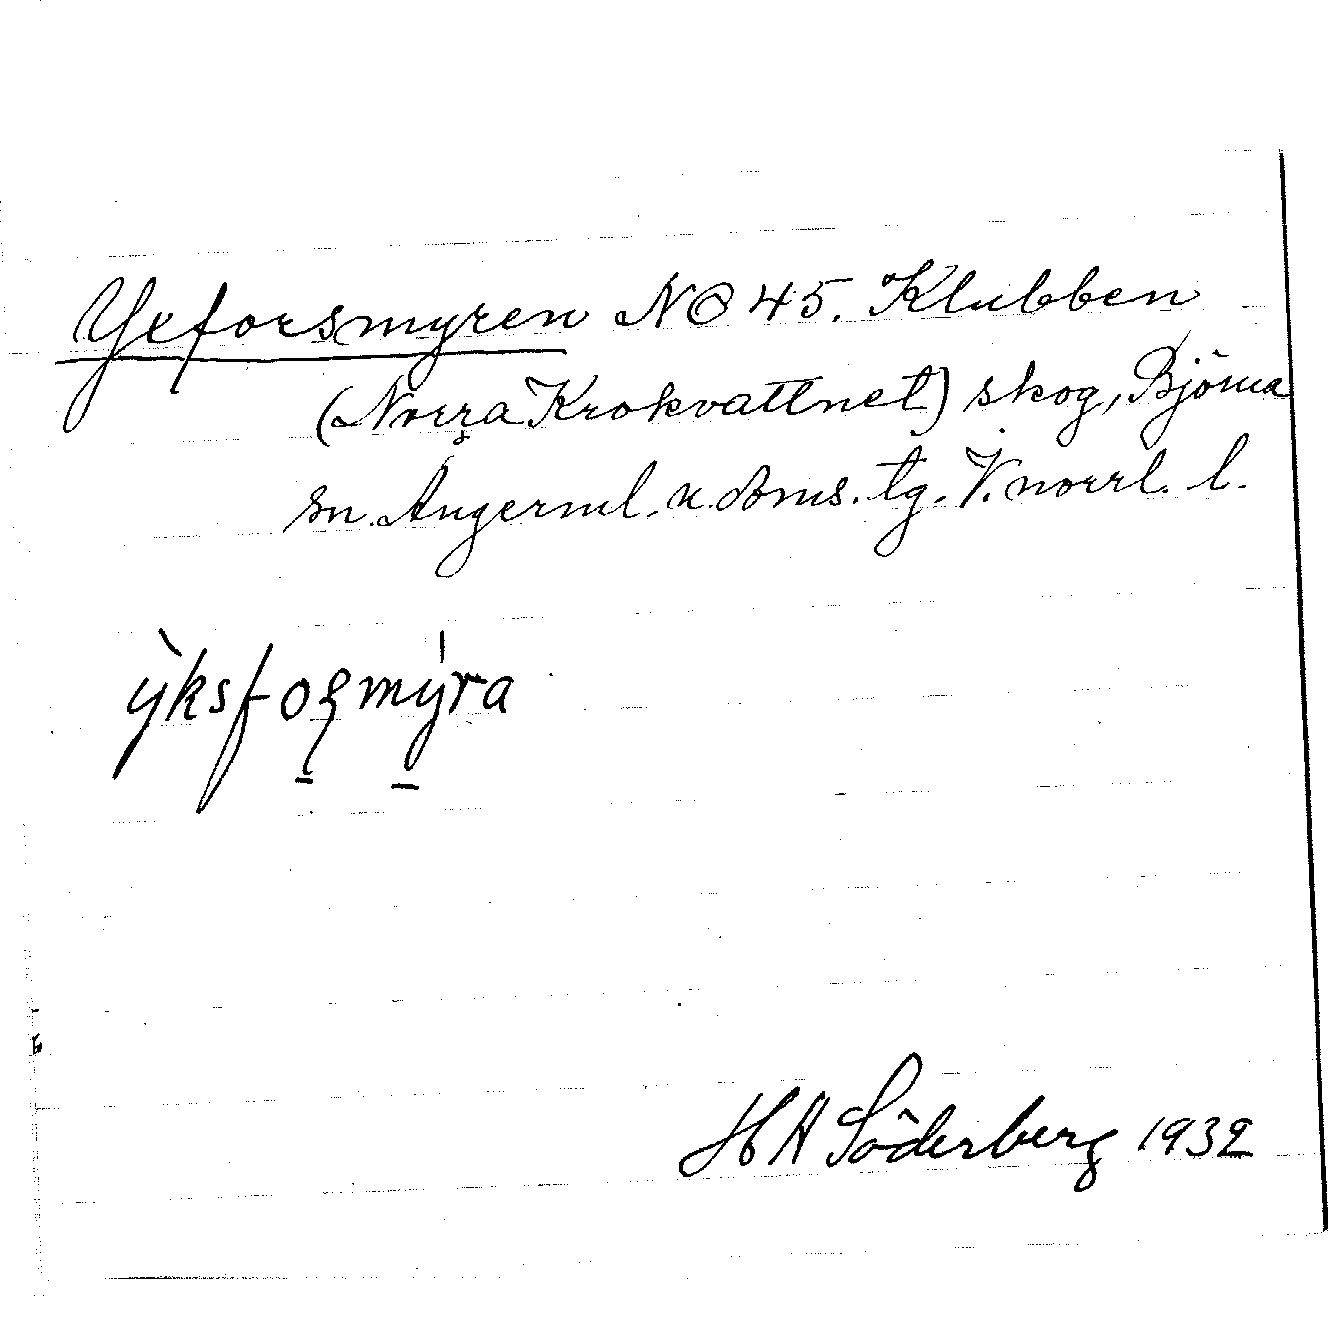 Yxforsmyren NO 45. Klubben
(Norra Krokvattnet) skog, Björna
sn. Ångerml. n. doms. tg. V. norrl. l.
ỳksforsmýra
H A Söderberg 1932